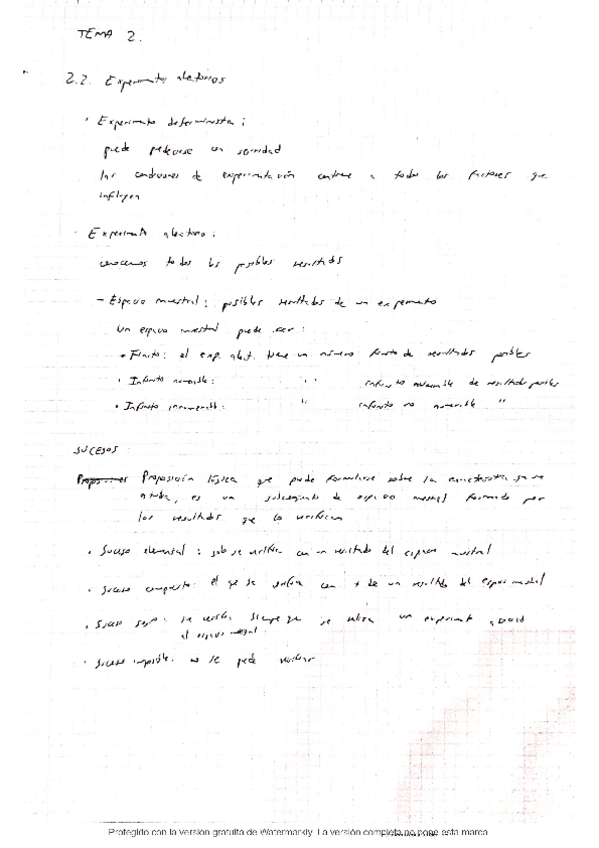 TEMA 2.
2.2. Experimentos aleatorios
• Experimento determinista:
puede predecirse con seriedad
las condiciones de experimentación contiene a todos los factores que
influyen
• Experimento aleatorio:
conocemos todos los posibles resultados
- Espacio muestral: posibles resultados de un experimento
Un espacio muestral puede ser:
• Finito: el exp. aleat. tiene un número finito de resultados posibles
• Infinito numerable: " infinito numerable de resultados posibles
• Infinito innumerable: " infinito no numerable "
SUCESOS:
Proposición lógica que puede formularse sobre la característica que se
es un subconjunto de espacio muestral formado por
los resultados que lo verifican
• Suceso elemental: solo se verifica con un resultado del espacio muestral
• Suceso compuesto: el que se verifica con + de un resultado del espacio muestral
• Suceso seguro: se verifica siempre que se realiza un experimento
el espacio muestral
• Suceso imposible: no se puede verificar
Protegido con la versión gratuita de Watermarkly. La versión completa no pone esta marca